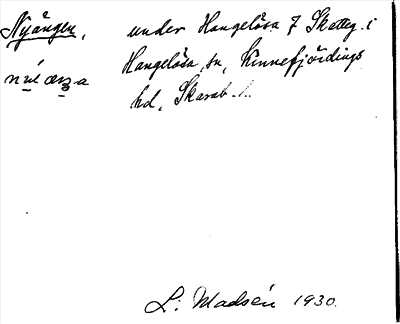 Nyängen, under Hangelösa 7 Skatteg. i
Hangelösa sn, Kinnefjärdings
hd, Skarab. l.
L: Madsén 1930.